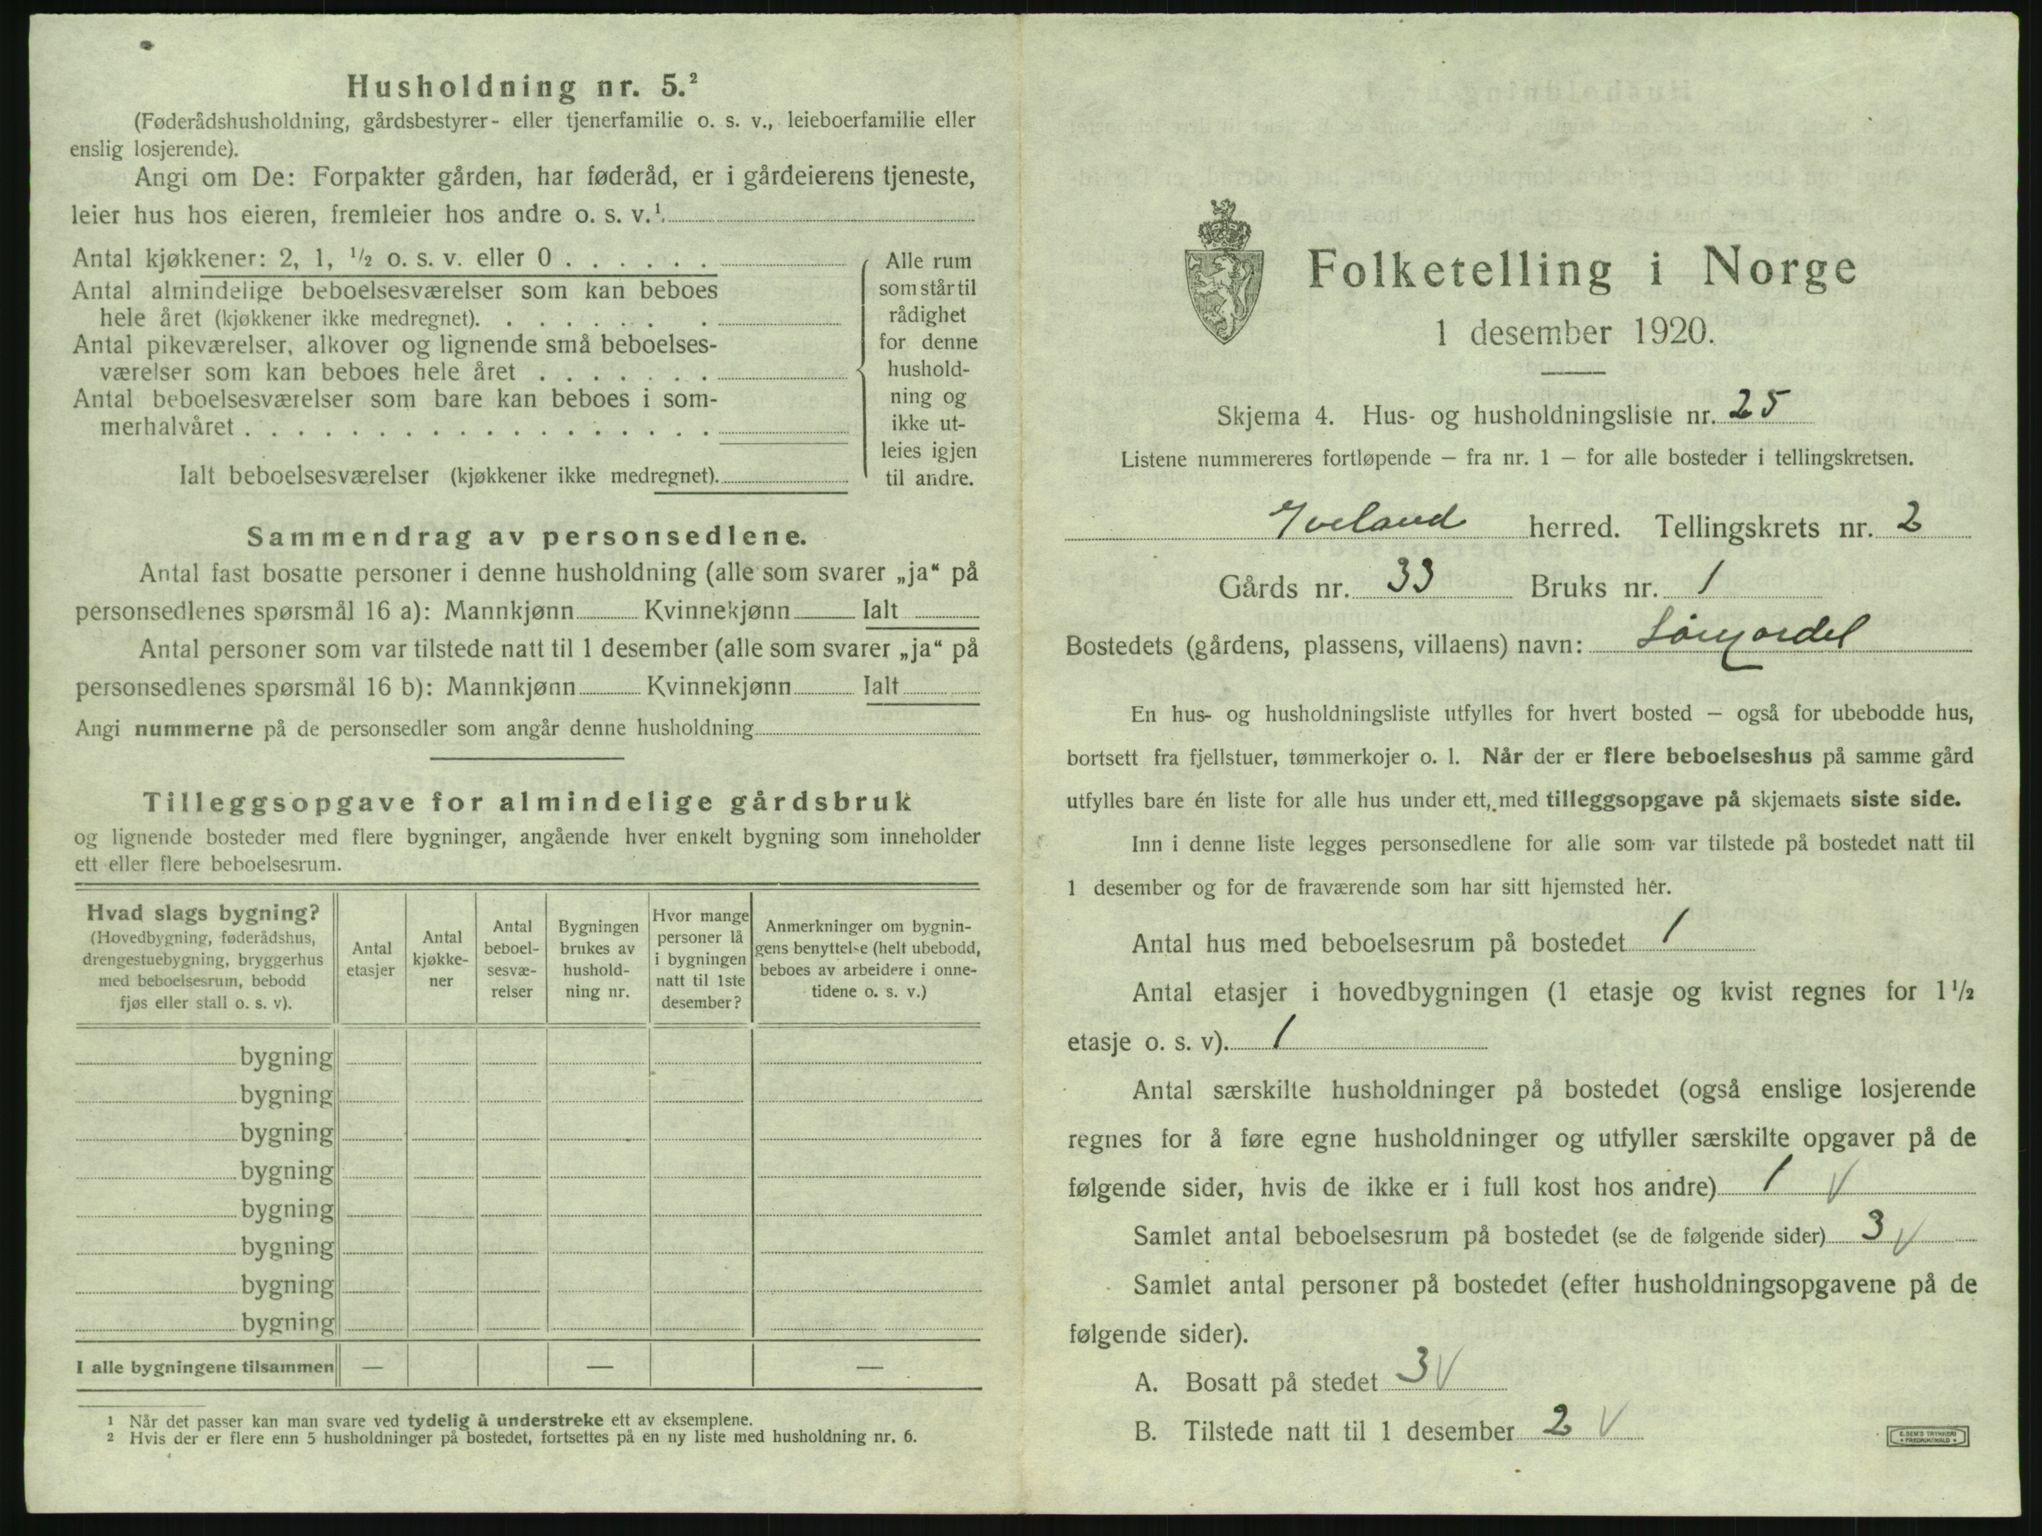 Husholdning nr. 5.²
(Føderådshusholdning, gårdsbestyrer- eller tjenerfamilie o. s. v., leieboerfamilie eller
enslig losjerende).
Angi om De: Forpakter gården, har føderåd, er i gårdeierens tjeneste,
leier hus hos eieren, fremleier hos andre o. s. v.¹
Antal kjøkkener: 2, 1, ½ o. s. v. eller 0 . . . . . .
Antal almindelige beboelsesværelser som kan beboes
hele året (kjøkkener ikke medregnet). . . . . . . .
Antal pikeværelser, alkover og lignende små beboelses-
værelser som kan beboes hele året . . . . . . .
Antal beboelsesværelser som bare kan beboes i som-
merhalvåret . . . . . . . . . . . . . . . . . .
Ialt beboelsesværelser (kjøkkener ikke medregnet).
Alle rum
som står til
rådighet
for denne
hushold-
ning og
ikke ut-
leies igjen
til andre.
Sammendrag av personsedlene.
Antal fast bosatte personer i denne husholdning (alle som svarer „ja“ på
personsedlenes spørsmål 16 a): Mannkjønn Kvinnekjønn Ialt
Antal personer som var tilstede natt til 1 desember (alle som svarer „ja“ på
personsedlenes spørsmål 16 b): Mannkjønn Kvinnekjønn Ialt
Angi nummerne på de personsedler som angår denne husholdning
Tilleggsopgave for almindelige gårdsbruk
og lignende bosteder med flere bygninger, angående hver enkelt bygning som inneholder
ett eller flere beboelsesrum.
Hvad slags bygning?
(Hovedbygning, føderådshus,
drengestuebygning, bryggerhus
med beboelsesrum, bebodd
fjøs eller stall o. s. v).
Antal
etasjer
Antal
kjøkke-
ner
Antal
beboel-
sesvæ-
relser
Bygningen
brukes av
hushold-
ning nr.
Hvor mange
personer lå
i bygningen
natt til 1ste
desember?
Anmerkninger om bygnin-
gens benyttelse (helt ubebodd,
beboes av arbeidere i onne-
tidene o. s. v.)
bygning
bygning
bygning
bygning
bygning
bygning
bygning
bygning
I alle bygningene tilsammen — — —
1 Når det passer kan man svare ved tydelig å understreke ett av eksemplene.
2 Hvis der er flere enn 5 husholdninger på bostedet, fortsettes på en ny liste med husholdning nr. 6.
Folketelling i Norge
1 desember 1920.
Skjema 4. Hus- og husholdningsliste nr. 25
Listene nummereres fortløpende – fra nr. 1 – for alle bosteder i tellingskretsen.
Iveland herred. Tellingskrets nr. 2
Gårds nr. 33 Bruks nr. 1
Bostedets (gårdens, plassens, villaens) navn:
En hus- og husholdningsliste utfylles for hvert bosted – også for ubebodde hus,
bortsett fra fjellstuer, tømmerkojer o. l. Når der er flere beboelseshus på samme gård
utfylles bare én liste for alle hus under ett, med tilleggsopgave på skjemaets siste side.
Inn i denne liste legges personsedlene for alle som var tilstede på bostedet natt til
1 desember og for de fraværende som har sitt hjemsted her.
Antal hus med beboelsesrum på bostedet 1
Antal etasjer i hovedbygningen (1 etasje og kvist regnes for 1½
etasje o. s. v). 1
Antal særskilte husholdninger på bostedet (også enslige losjerende
regnes for å føre egne husholdninger og utfyller særskilte opgaver på de
følgende sider, hvis de ikke er i full kost hos andre) 1 V
Samlet antal beboelsesrum på bostedet (se de følgende sider) 3 V
Samlet antal personer på bostedet (efter husholdningsopgavene på de
følgende sider).
A. Bosatt på stedet 3 V
B. Tilstede natt til 1 desember 2 V